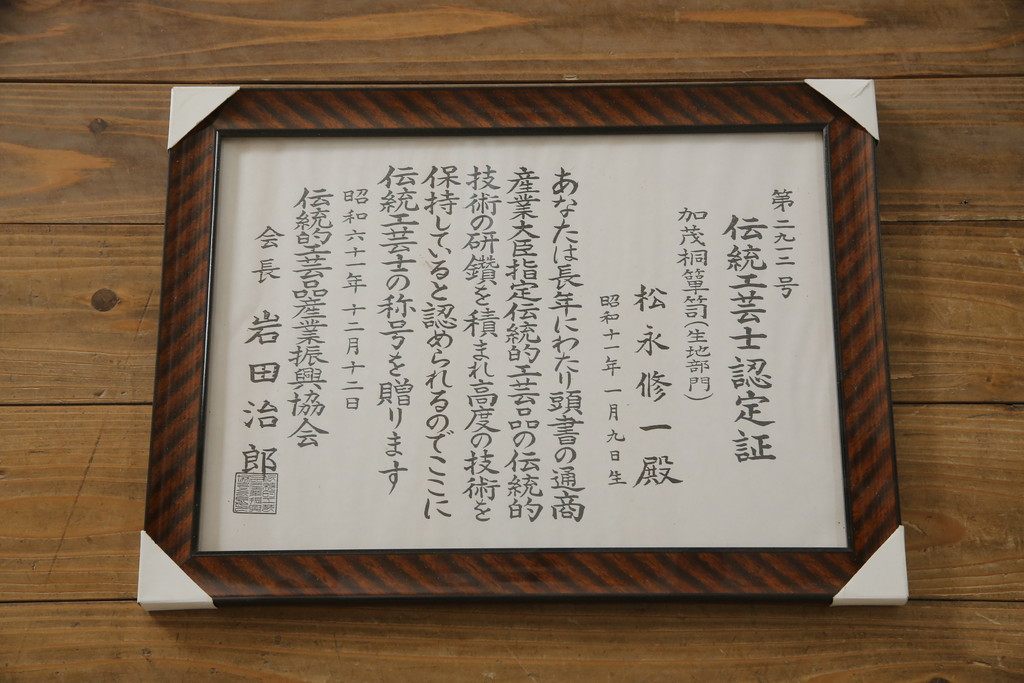 第二九一二号
伝統工芸士認定証
加茂桐簞笥(生地部門)
松永修一殿
昭和十一年一月九日生
あなたは長年にわたり頭書の通商
産業大臣指定伝統的工芸品の伝統的
技術の研鑽を積まれ高度の技術を
保持していると認められるのでここに
伝統工芸士の称号を贈ります
昭和六十一年十二月十二日
伝統的工芸品産業振興協会
会長 岩田治郎